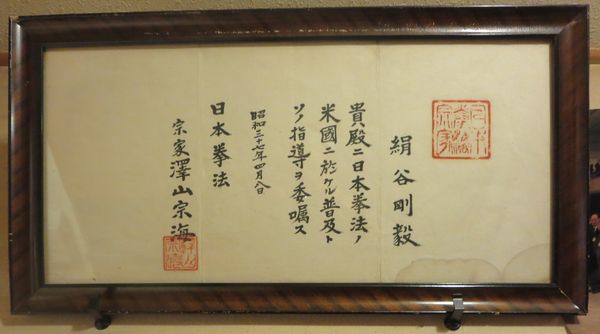 絹谷剛毅
貴殿ニ日本拳法ノ
米國ニ於ケル普及ト
ソノ指導ヲ委嘱ス
昭和三十七年四月八日
日本拳法
宗家澤山宗海